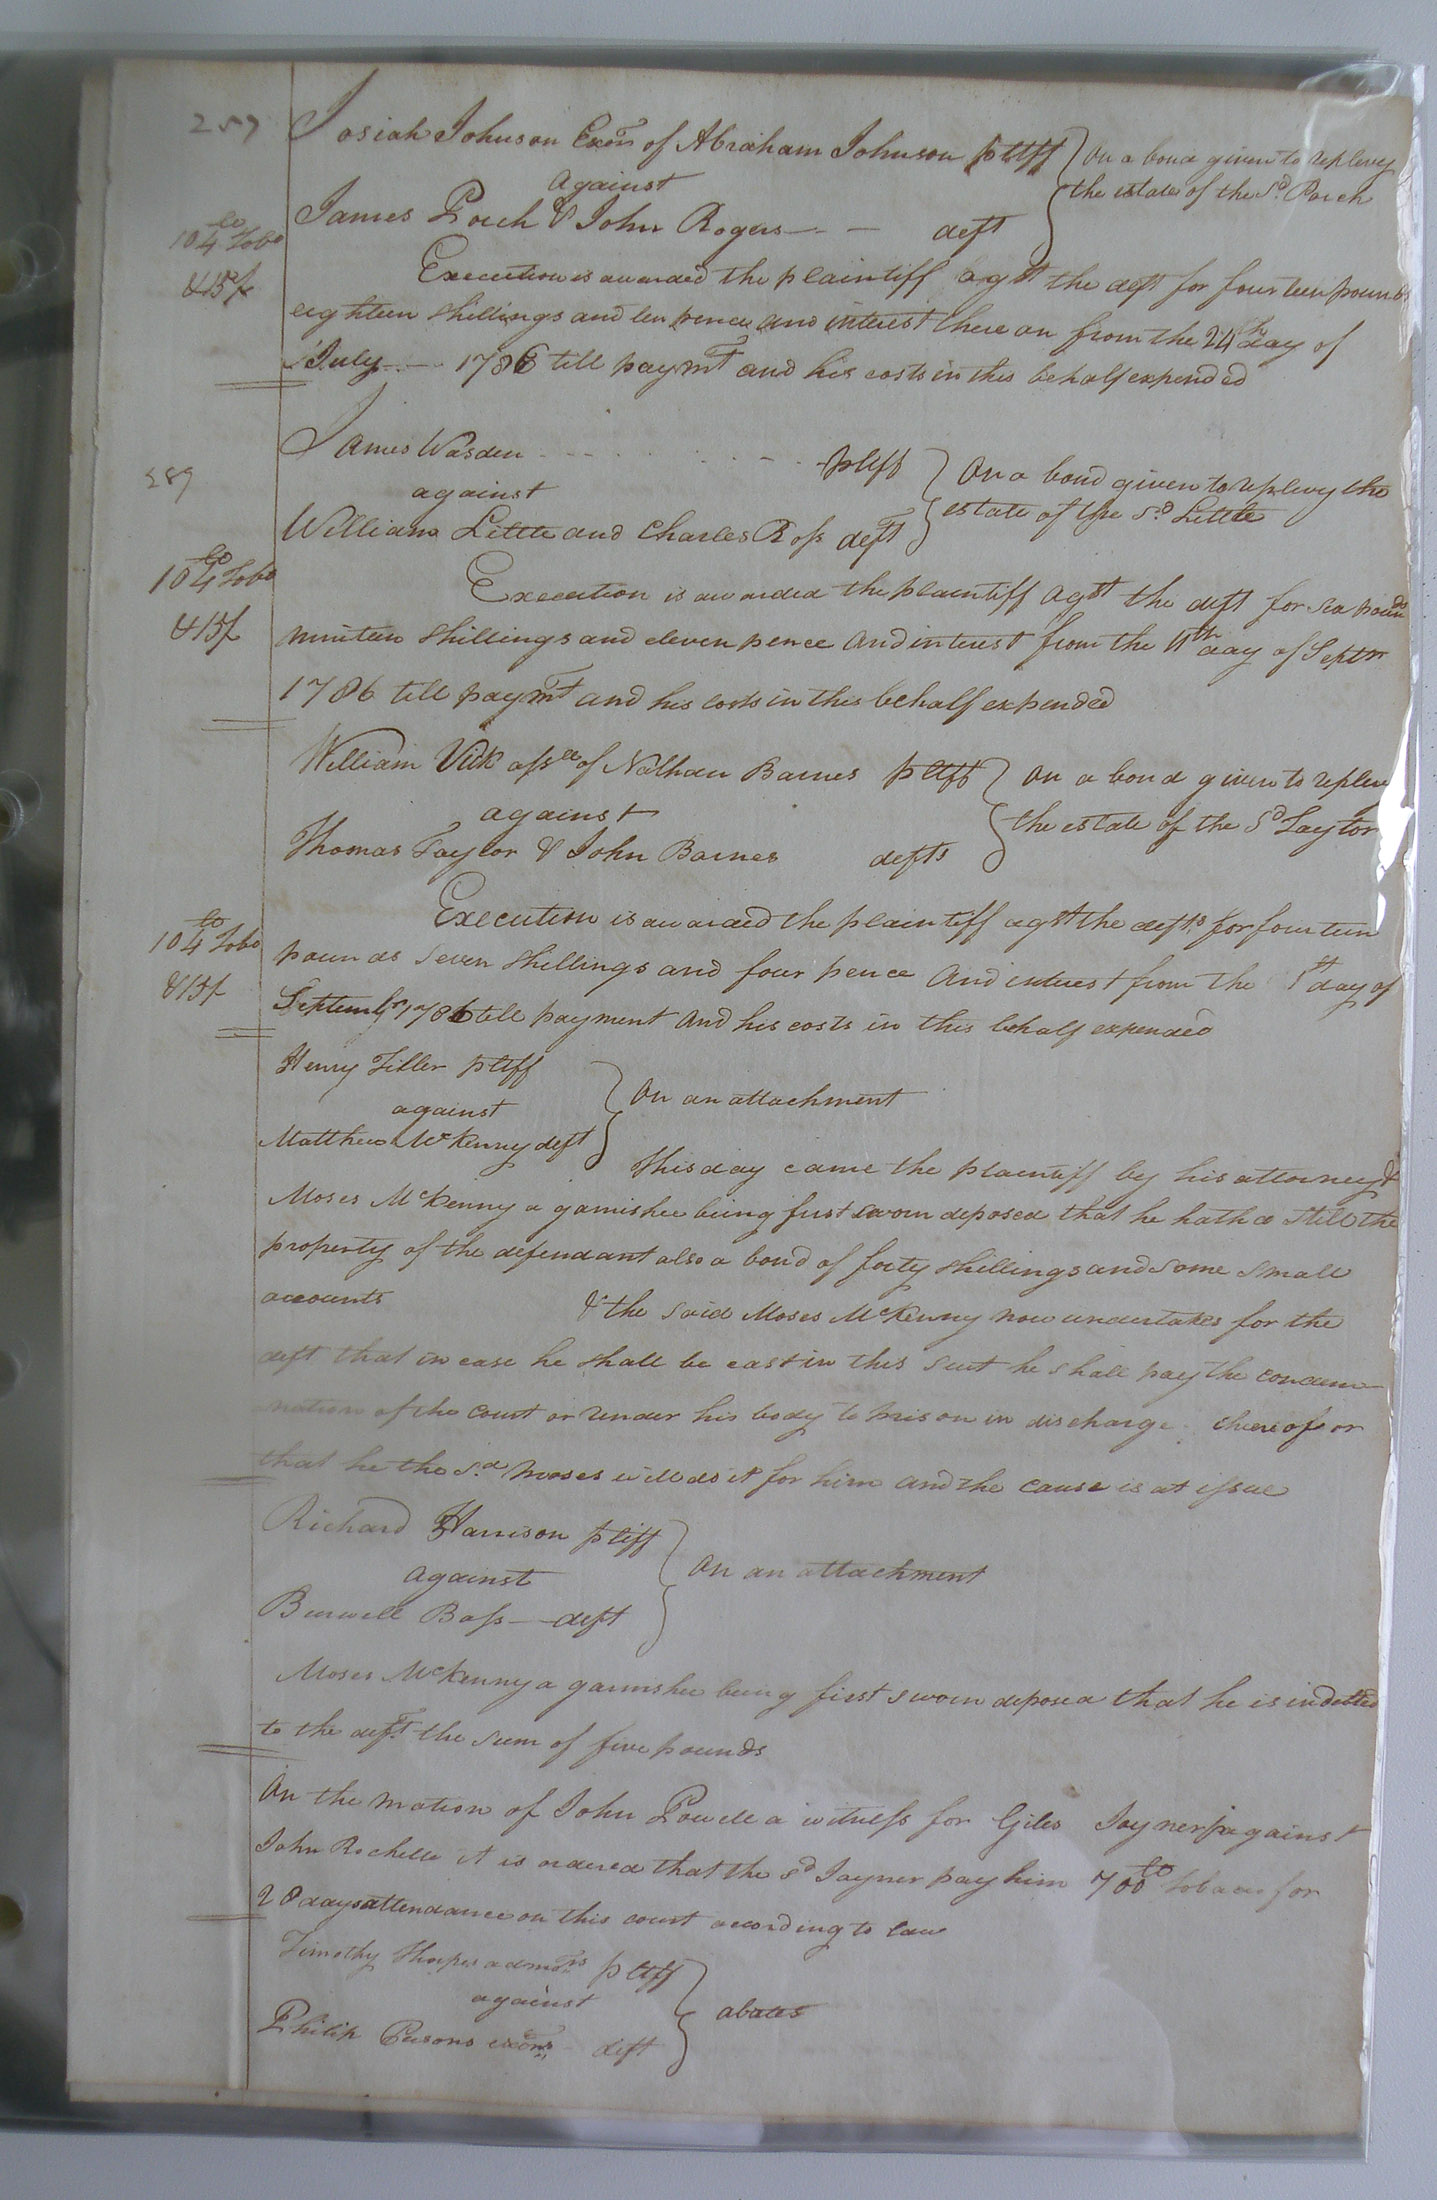 257
Josiah Johnson Exōr of Abraham Johnson pltff } On a bond given to replevy
against
the estate of the Sd. Porch
James Porch & John Rogers — — deft
lb
104 Tobo
& 15/
Execution is awarded the plaintiff agst the deft for fourteen pounds
eighteen shillings and ten pence and interest there on from the 24th day of
July — 1786 till paymt and his costs in this behalf expended
James Wasden pltff } On a bond given to replevy the
against
estate of the sd. Little
William Little and Charles Ross deft
lb
104 Tobo
& 15/
Execution is awarded the plaintiff agst the deft for six pounds
nineteen shillings and eleven pence and interest from the 11th day of Septr
1786 till paymt and his costs in this behalf expended
William Vick assee of Nathan Barnes pltff } On a bond given to replevy
against
the estate of the Sd Taylor
Thomas Taylor & John Barnes defts
lb
104 Tobo
& 15/
Execution is awarded the plaintiff agst the defts for fourteen
pounds seven shillings and four pence and interest from the 1st day of
Septembr 1786 till payment and his costs in this behalf expended
Henry Tiller pltff
against } On an attachment
Matthew McKenny deft
This day came the plaintiff by his attorney &
Moses McKenny a garnishee being first sworn deposed that he hath a still the
property of the defendant also a bond of forty shillings and some small
accounts & the said Moses McKenny now undertakes for the
deft that in case he shall be cast in this suit he shall pay the condem-
nation of the court or render his body to prison in discharge thereof or
that he the sd. Moses will do it for him and the cause is at issue
Richard Harrison pltff
against } On an attachment
Burwell Bass — deft
Moses McKenny a garnishee being first sworn deposed that he is indetted
to the deft. the sum of five pounds
On the motion of John Powell a witness for Giles Joyner against
John Rochelle it is ordered that the sd Joyner pay him 700 lb tobacco for
28 days attendance on this court according to law
Timothy Thorpes admors pltff
against } abates
Philip Persons exōrs deft